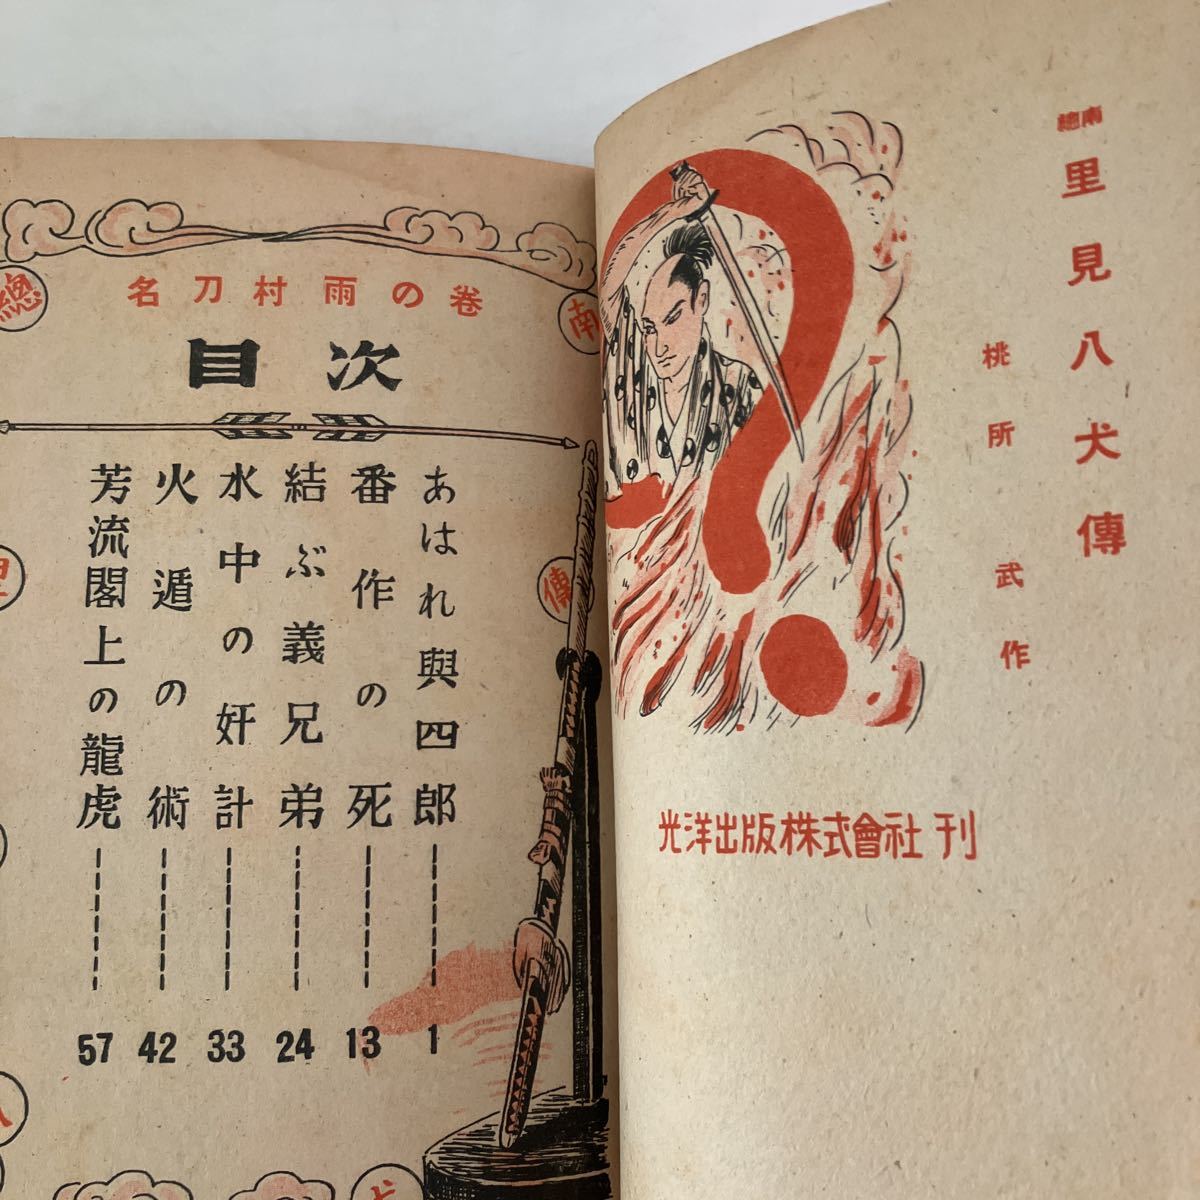 南總
里見八犬傳
桃所武作
光洋出版株式會社刊
名刀村雨の卷
目次
あはれ與四郎 1
番作の死 13
結ぶ義兄弟 24
水中の奸計 33
火遁の術 42
芳流閣上の龍虎 57
南
總
里
八
犬
傳